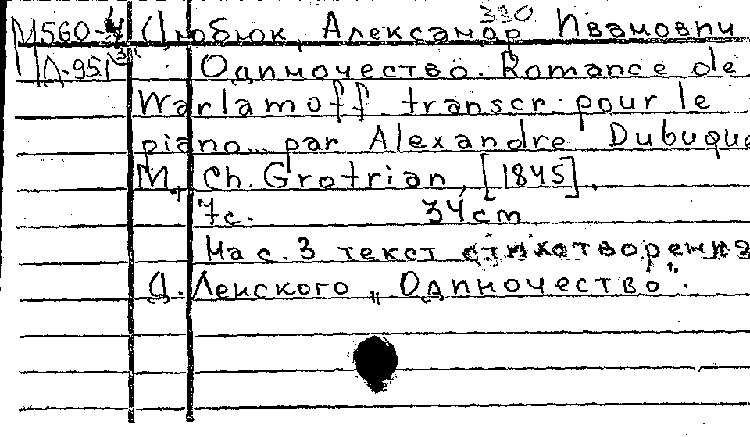 330
М560-4 Дюбюк, Александр Иванович
Д-951 Одиночество. Romance de
Warlamoff transcr. pour le
piano par Alexandre Dubuque
М., Ch. Grotrian, [1845].
7с. 34cm
На с. 3 текст стихотворения
Д. Ленского „Одиночество".